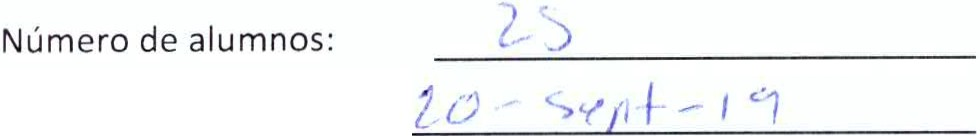 Número de alumnos: 25
20-Sept-19